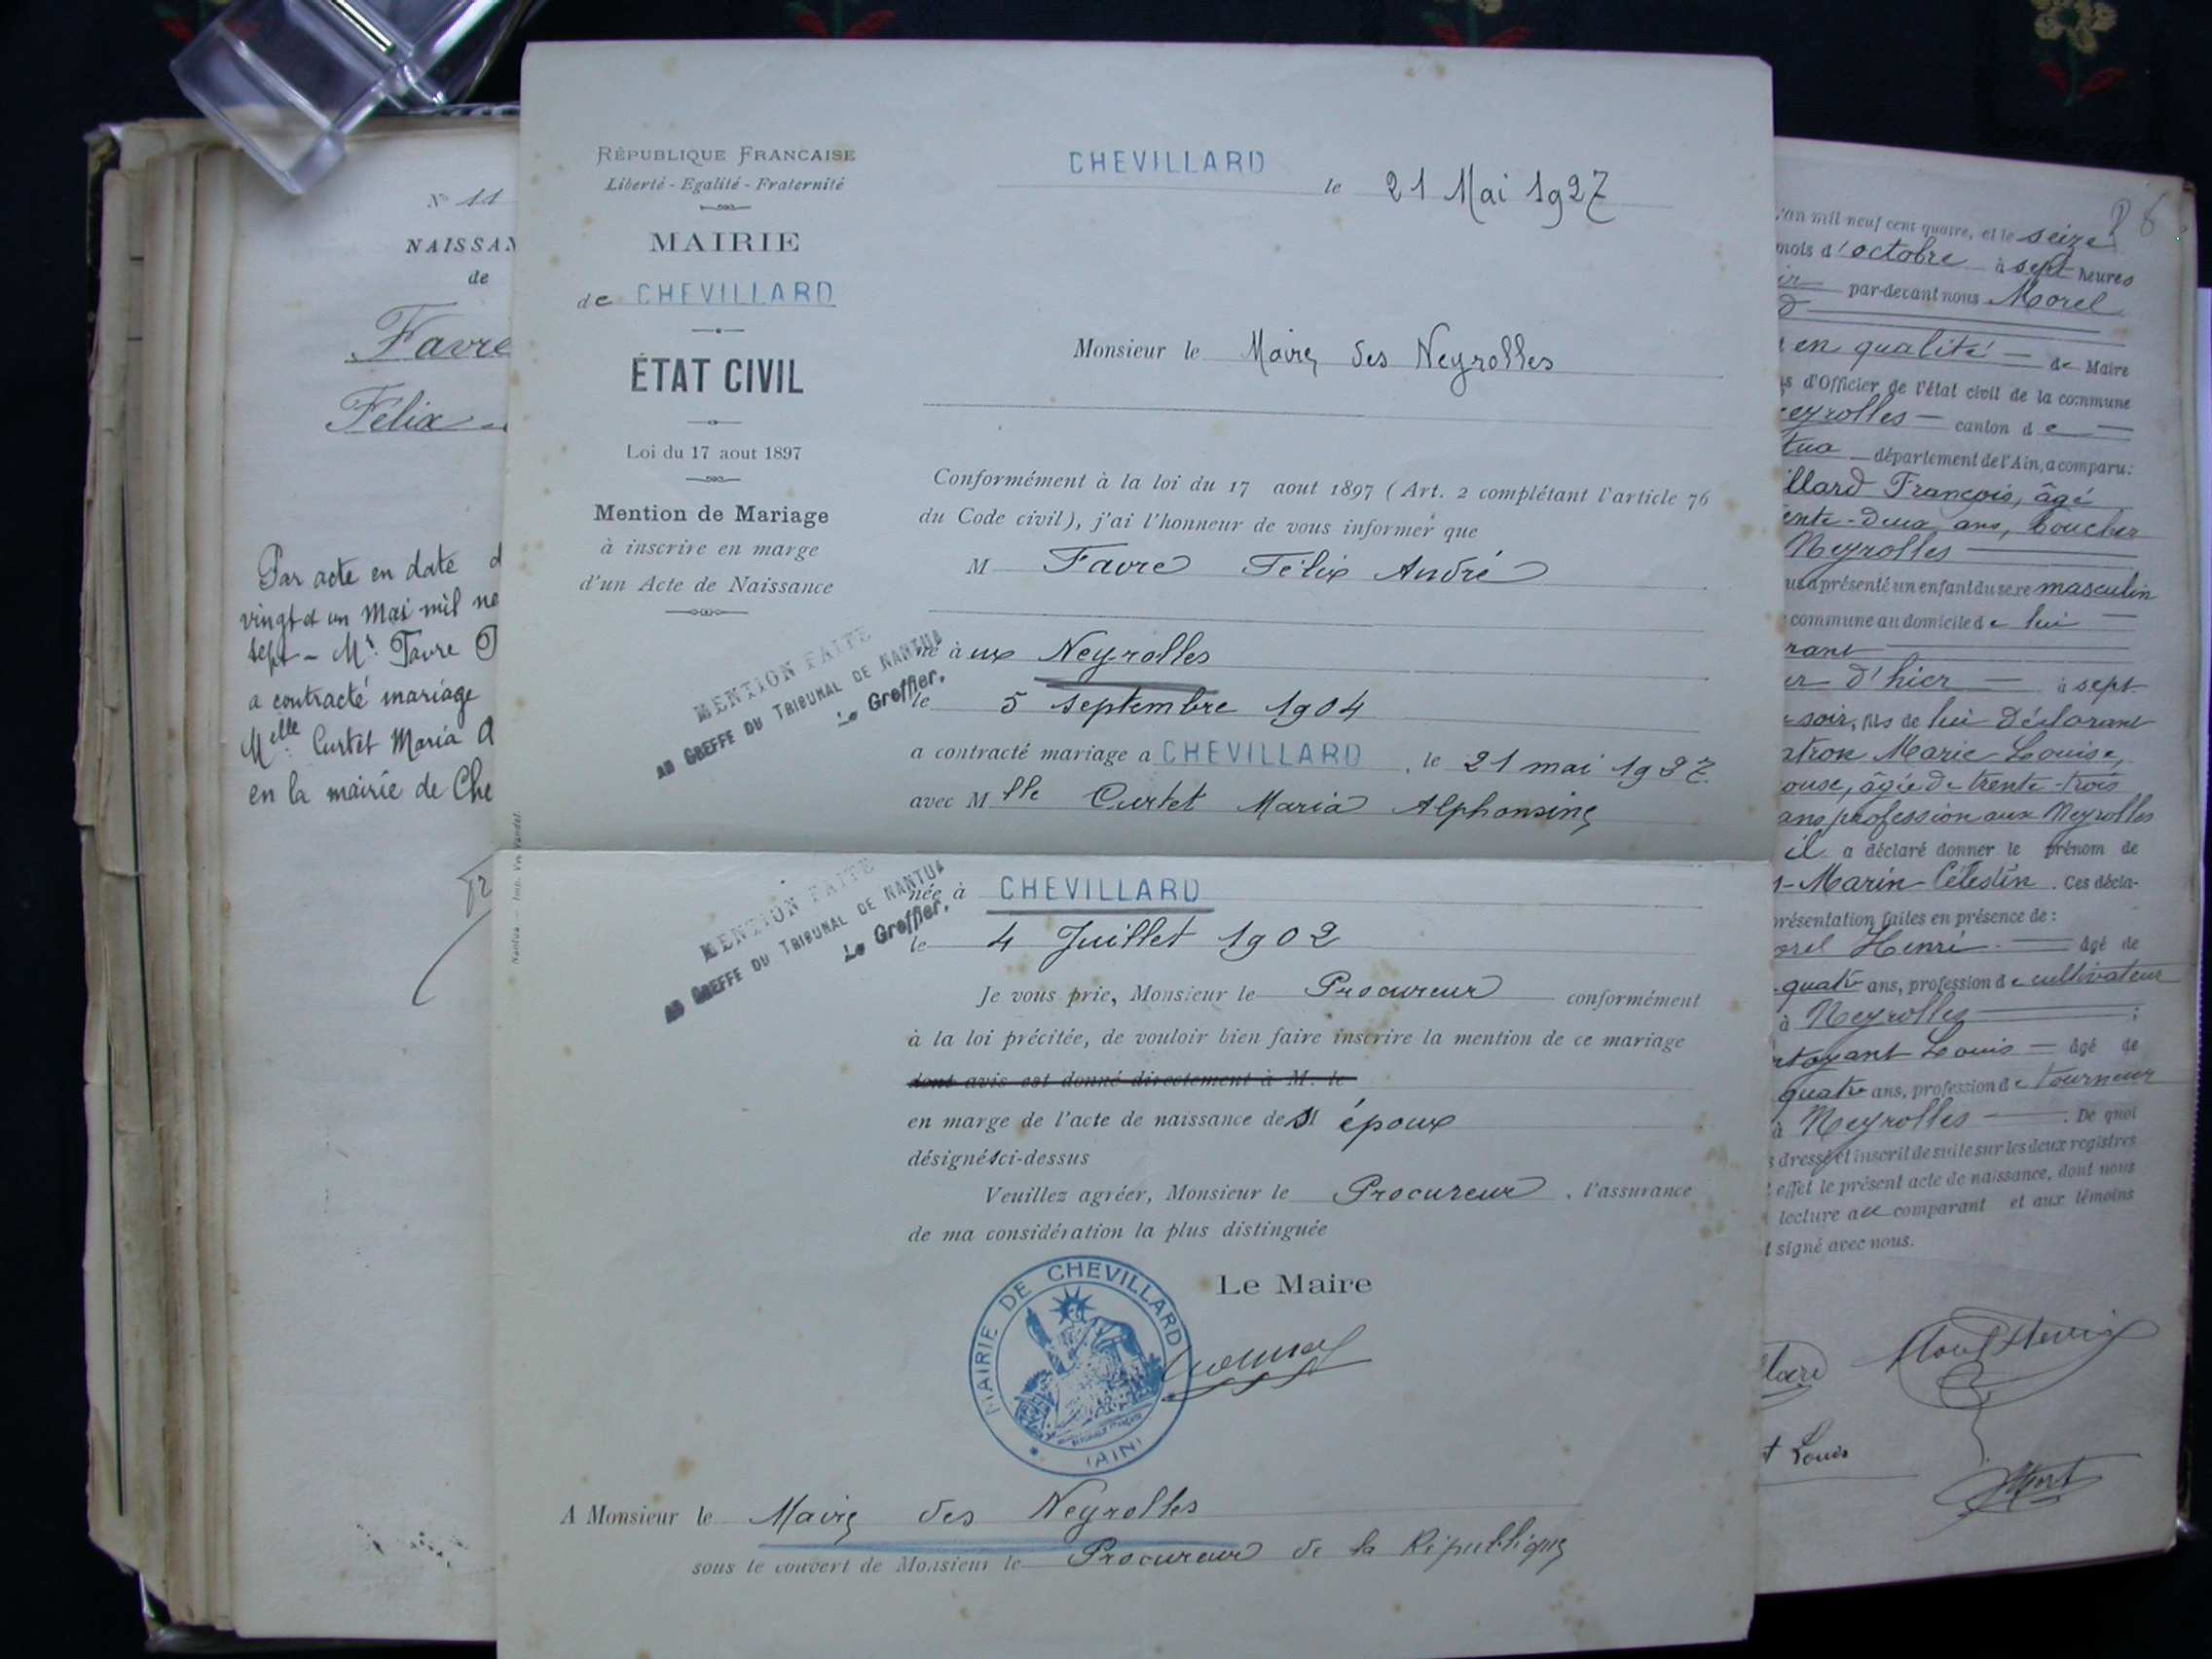 N° 11
NAISSAN
de
Favre
Félix
Par acte en date d
vingt et un Mai mil ne
sept - Mr. Favre
a contracté mariage
Melle Curtet Maria A
en la mairie de Che
RÉPUBLIQUE FRANCAISE
Liberté - Egalité - Fraternité
MAIRIE
de CHEVILLARD
ÉTAT CIVIL
Loi du 17 aout 1897
Mention de Mariage
à inscrire en marge
d'un Acte de Naissance
MENTION FAITE
AU GREFFE DU TRIBUNAL DE NANTUA
Le Greffier.
MENTION FAITE
AU GREFFE DU TRIBUNAL DE NANTUA
Le Greffier.
CHEVILLARD le 21 Mai 1927
Monsieur le Maire des Neyrolles
Conformément à la loi du 17 aout 1897 (Art. 2 complétant l'article 76
du Code civil), j'ai l'honneur de vous informer que
M Favre Félix André
né à ux Neyrolles
le 5 septembre 1904
a contracté mariage a CHEVILLARD, le 21 mai 1927
avec M lle Curtet Maria Alphonsine
née à CHEVILLARD
le 4 Juillet 1902
Je vous prie, Monsieur le Procureur conformément
à la loi précitée, de vouloir bien faire inscrire la mention de ce mariage
dont avis est donné directement à M. le
en marge de l'acte de naissance des époux
désignés ci-dessus
Veuillez agréer, Monsieur le Procureur, l'assurance
de ma considération la plus distinguée
Le Maire
MAIRIE DE CHEVILLARD
(AIN)
A Monsieur le Maire des Neyrolles
sous le couvert de Monsieur le Procureur de la République
'an mil neuf cent quatre, et le seize
mois d'octobre à sept heures
par-devant nous Morel
en qualité de Maire
s d'Officier de l'état civil de la commune
eyrolles canton de
tua département de l'Ain, a comparu:
illard François, âgé
ente-deux ans, boucher
Neyrolles
us a présenté un enfant du sexe masculin
commune au domicile de lui
rant
ur d'hier à sept
soir, fils de lui déclarant
atron Marie Louise,
ouse, âgée de trente-trois
ans profession aux Neyrolles
il a déclaré donner le prénom de
-Marin-Célestin. Ces décla-
présentation faites en présence de:
orel Henri âgé de
quatre ans, profession de cultivateur
à Neyrolles ;
rtoyant Louis âgé de
quatre ans, profession de tourneur
à Neyrolles. De quoi
s dressé et inscrit de suite sur les deux registres
effet le présent acte de naissance, dont nous
lecture au comparant et aux témoins
t signé avec nous.
Morel Henri
t Louis